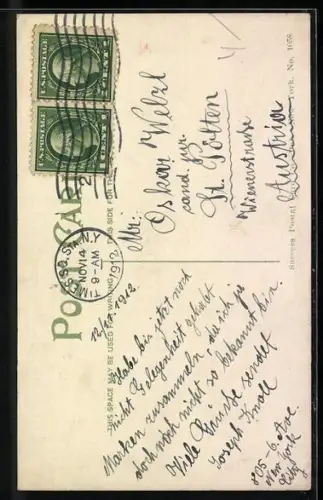 U.S. POSTAGE
1 CENT 1
U.S. POSTAGE
1 CENT 1
POST CARD
THIS SPACE MAY BE USED FOR WRITING
THIS SIDE FOR TH
TIMES SQ. STA. N.Y.
NOV 14
9-AM
1912
Mr:
Oskar Welzl
cand. jur.
St. Pölten
Wienerstrasse
Austria
Success Postal
York. No. 1058
1912.
Habe bis jetzt noch
nicht Gelegenheit gehabt
Marken zusammeln da ich ja
doch noch nicht so bekannt bin.
Viele Grüsse sendet
Joseph Knoll
805-6. Ave.
New York
City